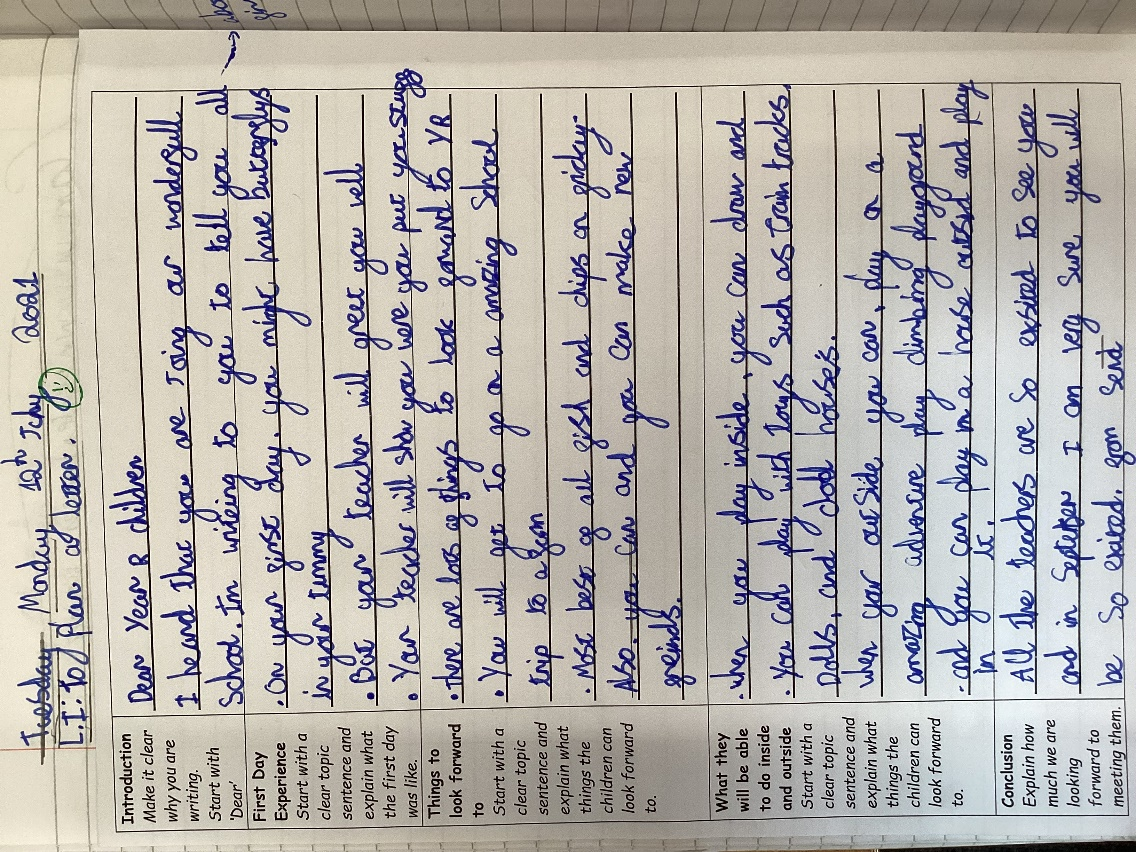 Tuesday Monday 12th July 2021
L.I: To plan a letter.
Introduction
Make it clear
why you are
writing.
Start with
'Dear'
Dear Year R children
I heard that you are Joing our wondergull
School. Im writeing to you to tell you all
First Day
Experience
Start with a
clear topic
sentence and
explain what
the first day
was like.
• On your first day, you might have butterflys
in your tummy
• But your teacher will greet you well
• Your teacher will show you were you put your stuff
Things to
look forward
to
Start with a
clear topic
sentence and
explain what
things the
children can
look forward
to.
• There are lots of things to look forward to YR
• You will get to go on a amazing School
trip to a farm
• Most best of all fish and chips on friday
Also, you can and you can make new
freinds.
What they
will be able
to do inside
and outside
Start with a
clear topic
sentence and
explain what
things the
children can
look forward
to.
• when you play inside, you can draw and
• you can play with toys such as train tracks,
Dolls, and doll house's.
when your outSide you can, play on a
amazing adventure play climbing playground
• and you can play in a house outsid and play
in it.
Conclusion
Explain how
much we are
looking
forward to
meeting them.
All the teachers are So exsited to see you
and in September I am very sure you will
be So exited. from Send